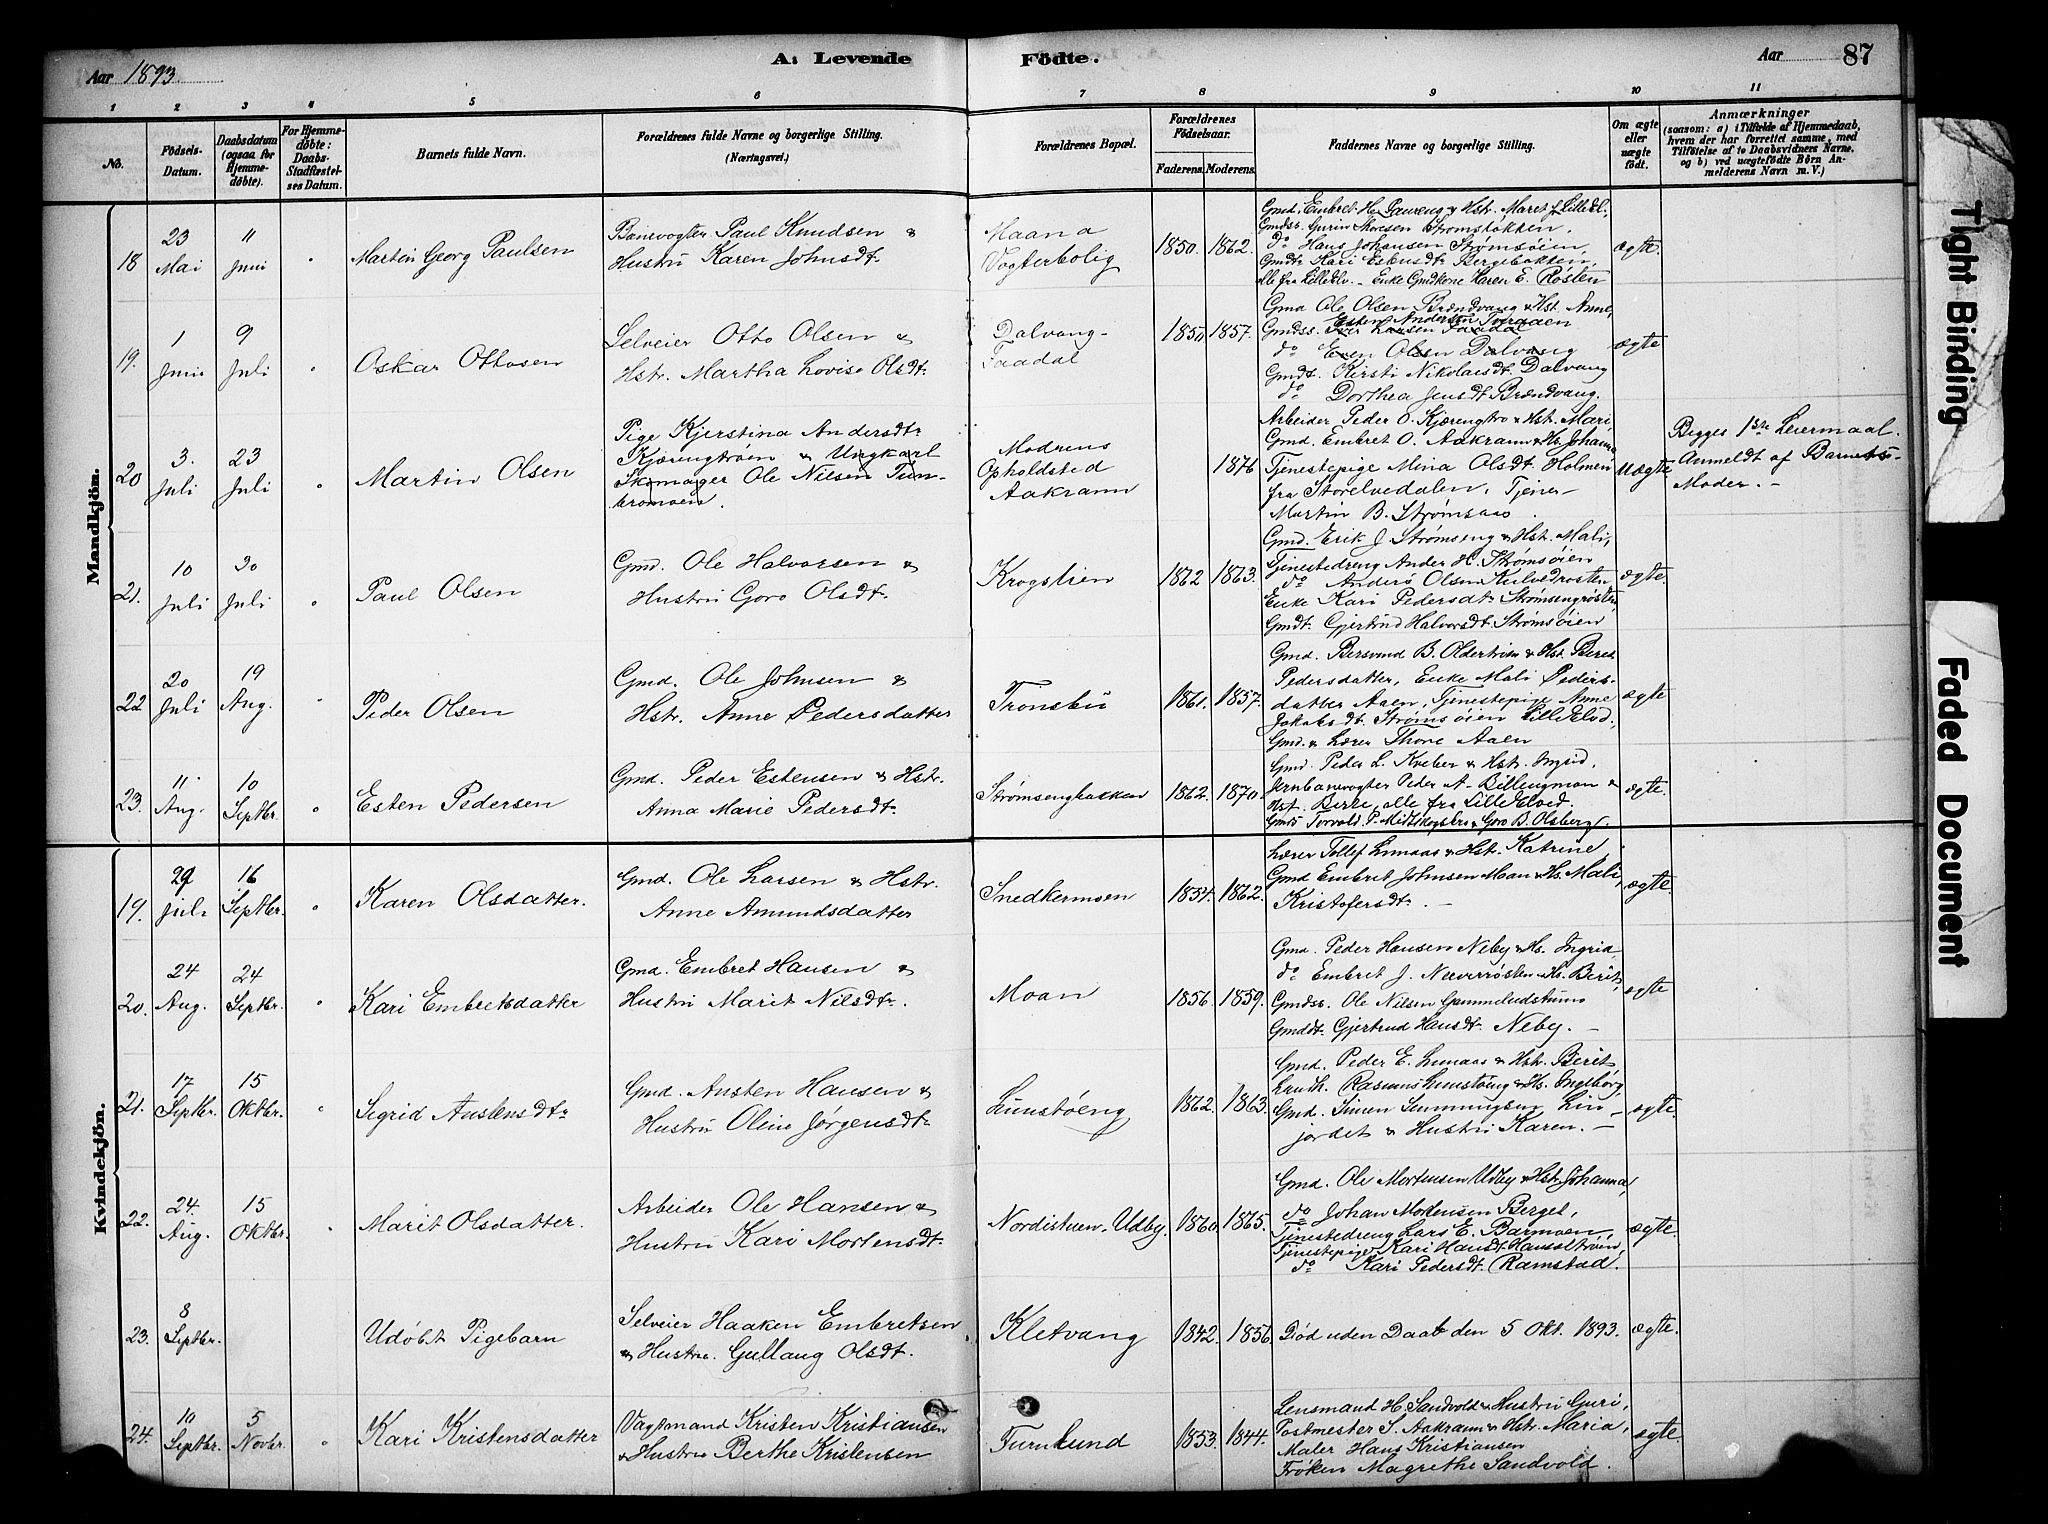 Aar 1893.
A. Levende
Födte.
Aar
87
1 2 3 4 5 6 7 8 9 10 11
No.
Födsels-Datum.
Daabsdatum (ogsaa for Hjemme-döbte).
For Hjemme-döbte: Daabs-Stadfæstelses Datum.
Barnets fulde Navn.
Forældrenes fulde Navne og borgerlige Stilling. (Næringsvei.)
Forældrenes Bopæl.
Forældrenes Födselsaar.
Faderens. Moderens.
Faddernes Navne og borgerlige Stilling.
Om ægte eller uægte födt.
Anmærkninger
(saasom: a) i Tilfælde af Hjemmedaab, hvem der har forrettet samme, med Tilföielse af to Daabsvidners Navne, og b) ved uægtefödte Börn Anmelderens Navn m. V.)
Mandkjön.
18
23 Mai
11 Juni
Martin Georg Paulsen
Banevogter Paul Knudsen &
Hustru Karen Johnsdtr
Maana
Vogterbolig
1850. 1862.
Gmd. Embret H. & Hst. Maret J. Lilleelv.
Gmdss. Strømsbakken,
do Hans Johansen Strømsøien,
Gmdt. Kari Bergebakken,
alle fra Lilleelv. – Enke Gmdkone Karen E. Røsten
ægte.
19.
1 Juni
9 Juli
Oskar Ottosen
Selveier Otto Olsen &
Hstr. Martha Lovise Olsdtr
Dalvang-
Faadal
1850 1857.
Gmd Ole Olsen Brændvang & Hst. Anne,
Gmdss. Esten Andersen
do Even Olsen Dalvang
Gmdt. Kirsti Nikolaisdt. Dalvang
do Dorthea Jensdt Brændvang.
ægte
20
3. Juli
23 Juli
Martin Olsen
Pige Kjerstina Andersdtr
Kjærengtrøen & Ungkarl
Skomager Ole Nilsen Tum-
bromoen.
Modrens
Opholdsted
Aakrann
1876
Arbeider Peder O. Kjærengtrø & Hst. Mari,
Gmd. Embret O. Aakrann & Hs. Johanna
Tjenestepige Mina Olsdt. Holmen
fra Storelvedalen, Tjener
Martin B. Strømsaas.
Uægte
Begges 1ste Leiermaal.
Anmeldt af Barnets
Moder. –
21.
10 Juli
30 Juli
Paul Olsen
Gmd. Ole Halvorsen &
Hustru Goro Olsdtr.
Krogstien
1862 1863.
Gmd. Erik J. Strømseng & Hst. Mali,
Tjenestedreng Ander H. Strømsøien
do Anders Olsen Kulvedrosten
Enke Kari Pedersdtr Strømsengrøsten
Gmdt. Gjertrud Halvorsdt. Strømsøien
ægte.
22
20 Juli
19 Aug.
Peder Olsen
Gmd. Ole Johnsen &
Hstr. Anne Pedersdatter
Tronsbu
1861. 1857.
Gmd. Bersvend B. Oldertrøen & Hst. Beret
Pedersdatter, Enke Mali Peders-
datter Aaen, Tjenestepige Anne
Jakobsdt. Strømsøien Lilleelved,
Gmd. & Lærer Thore Aaen
ægte
23.
11. Aug.
10 Septbr.
Esten Pedersen
Gmd. Peder Estensen & Hstr.
Anna Marie Pedersdtr.
Strømsengbakken
1862. 1870
Gmd. Peder L. Kveber & Hst. Ingrid,
Jernbanevogter Peder A. Billengmoen &
Hst. Berte, alle fra Lilleelved.
Gmds Torvald P. Midtskogsbro & Goro B. Olsberg.
ægte.
Kvindekjön.
19.
29 Juli
16 Septbr.
Karen Olsdatter.
Gmd. Ole Larsen & Hstr.
Anne Amundsdatter
Snedkermoen
1854. 1862.
Lærer Tollef Lunaas & Hst. Katrine
Gmd Embret Johnsen Moan & Hs. Mali,
Kristofersdtr. –
ægte.
20.
24 Aug.
24 Septbr.
Kari Embretsdatter
Gmd. Embret Hansen &
Hustru Marit Nilsdtr.
Moan
1856. 1859.
Gmd. Peder Hansen Neby & Hs. Ingrid,
do Embret J. Neverrøsten & Hs. Berit,
Gmdss. Ole Nilsen Gammeludstumo
Gmddt. Gjertrud Hansdt. Neby. –
ægte
21.
17 Septbr.
15 Oktbr.
Sigrid Austensdtr
Gmd. Austen Hansen &
Hustru Oline Jørgensdtr
Lunstøeng
1862. 1863.
Gmd. Peder E. Lunaas & Hst. Berit
Rasmus Lunstøeng & Hs. Ingeborg,
Gmd. Simen Semmingsen Lin-
jordet & Hustru Karen. –
ægte.
22.
24. Aug.
15 Oktbr.
Marit Olsdatter.
Arbeider Ole Hansen &
Hustru Kari Mortensdt.
Nordistuen, Udby.
1860 1865.
Gmd. Ole Mortensen Udby & Hst. Johanna,
do Johan Mortensen Berget,
Tjenestedreng Lars E. Barmoen,
Tjenestepige Kari Hansdt
do Kari Pedersdt. Ramstad.
ægte.
23.
8 Septbr.
Udøbt Pigebarn
Selveier Haaken Embretsen
& Hustru. Gullaug Olsdt.
Kletvang
1842. 1856
Død uden Daab den 5 Okt. 1893.
ægte.
24.
10 Septbr.
5 Novbr.
Kari Kristensdatter
Vagtmand Kristen Kristiansen
& Hustru Berthe Kristensen
Furulund
1853. 1844.
Lensmand H. Sandvold & Hustru Guri,
Postmester S. Aakrann & Hstr. Maria,
Maler Hans Kristiansen
Frøken Magrethe Sandvold.
ægte.
Tight Binding
Faded Document